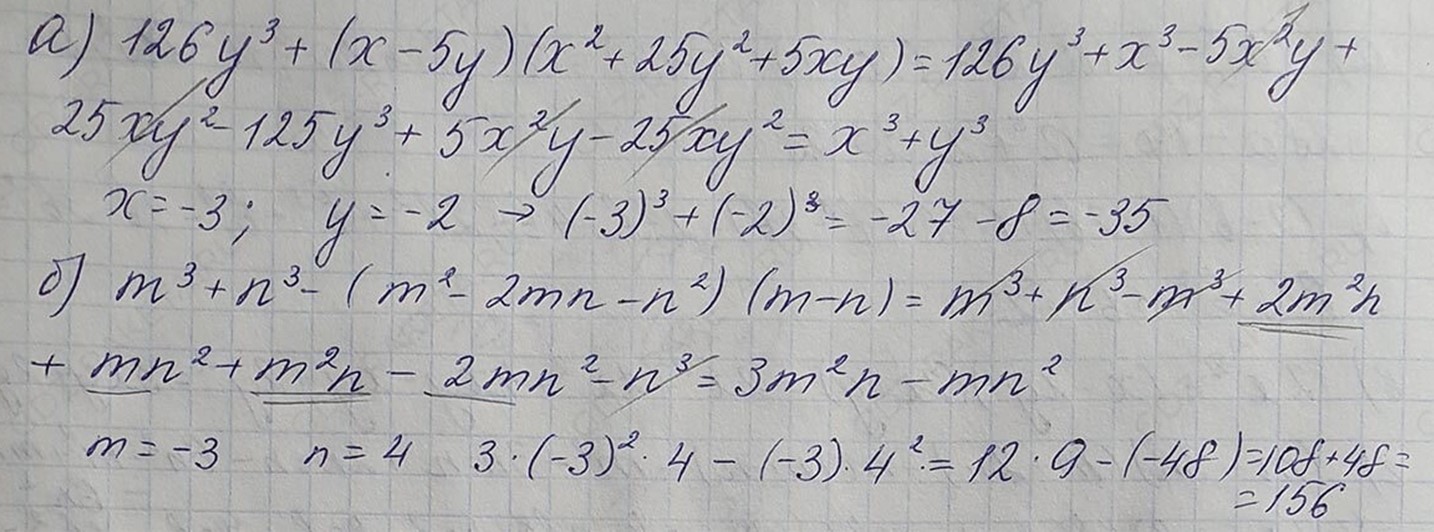 а) 126y³ + (x - 5y)(x² + 25y² + 5xy) = 126y³ + x³ - 5x²y +
25xy² - 125y³ + 5x²y - 25xy² = x³ + y³
x = -3; y = -2 → (-3)³ + (-2)³ = -27 - 8 = -35
б) m³ + n³ - (m² - 2mn - n²)(m - n) = m³ + n³ - m³ + 2m²n
+ mn² + m²n - 2mn² - n³ = 3m²n - mn²
m = -3 n = 4 3·(-3)²·4 - (-3)·4² = 12·9 - (-48) = 108 + 48 =
= 156